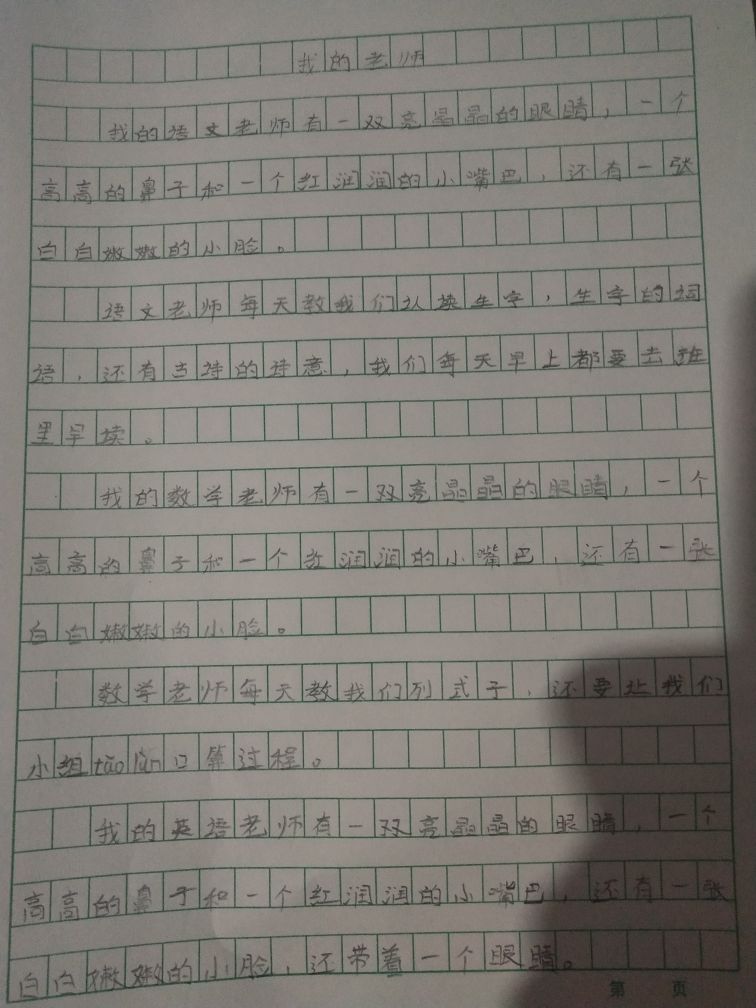 我的老师
我的语文老师有一双亮晶晶的眼睛，一个
高高的鼻子和一个红润润的小嘴巴，还有一张
白白嫩嫩的小脸。
语文老师每天教我们认读生字，生字的词
语，还有古诗的诗意，我们每天早上都要去班
里早读。
我的数学老师有一双亮晶晶的眼睛，一个
高高的鼻子和一个红润润的小嘴巴，还有一张
白白嫩嫩的小脸。
数学老师每天教我们列式子，还要让我们
小组tāo lùn口算过程。
我的英语老师有一双亮晶晶的眼睛，一个
高高的鼻子和一个红润润的小嘴巴，还有一张
白白嫩嫩的小脸，还带着一个眼睛。
第 页